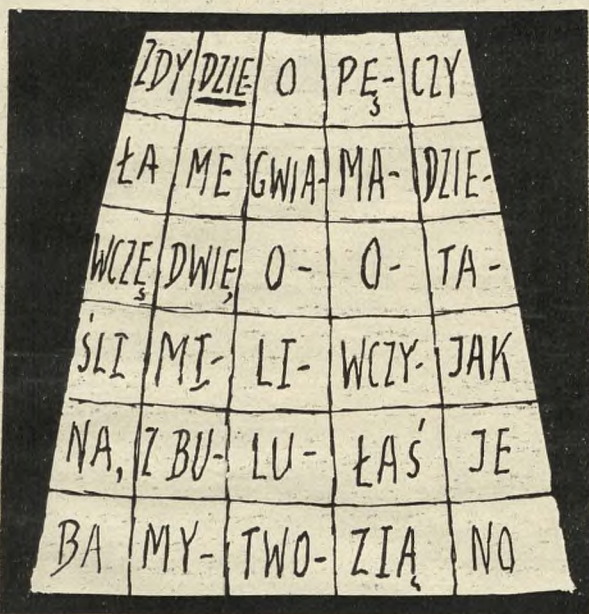 ZDY DZIE- O PĘ- CZY
ŁA ME GWIA- MA- DZIE-
WCZĘ DWIĘ O- O- TA-
ŚLI MI- LI- WCZY- JAK
NA, Z BU- LU- ŁAŚ JE
BA MY- TWO- ZIĄ NO